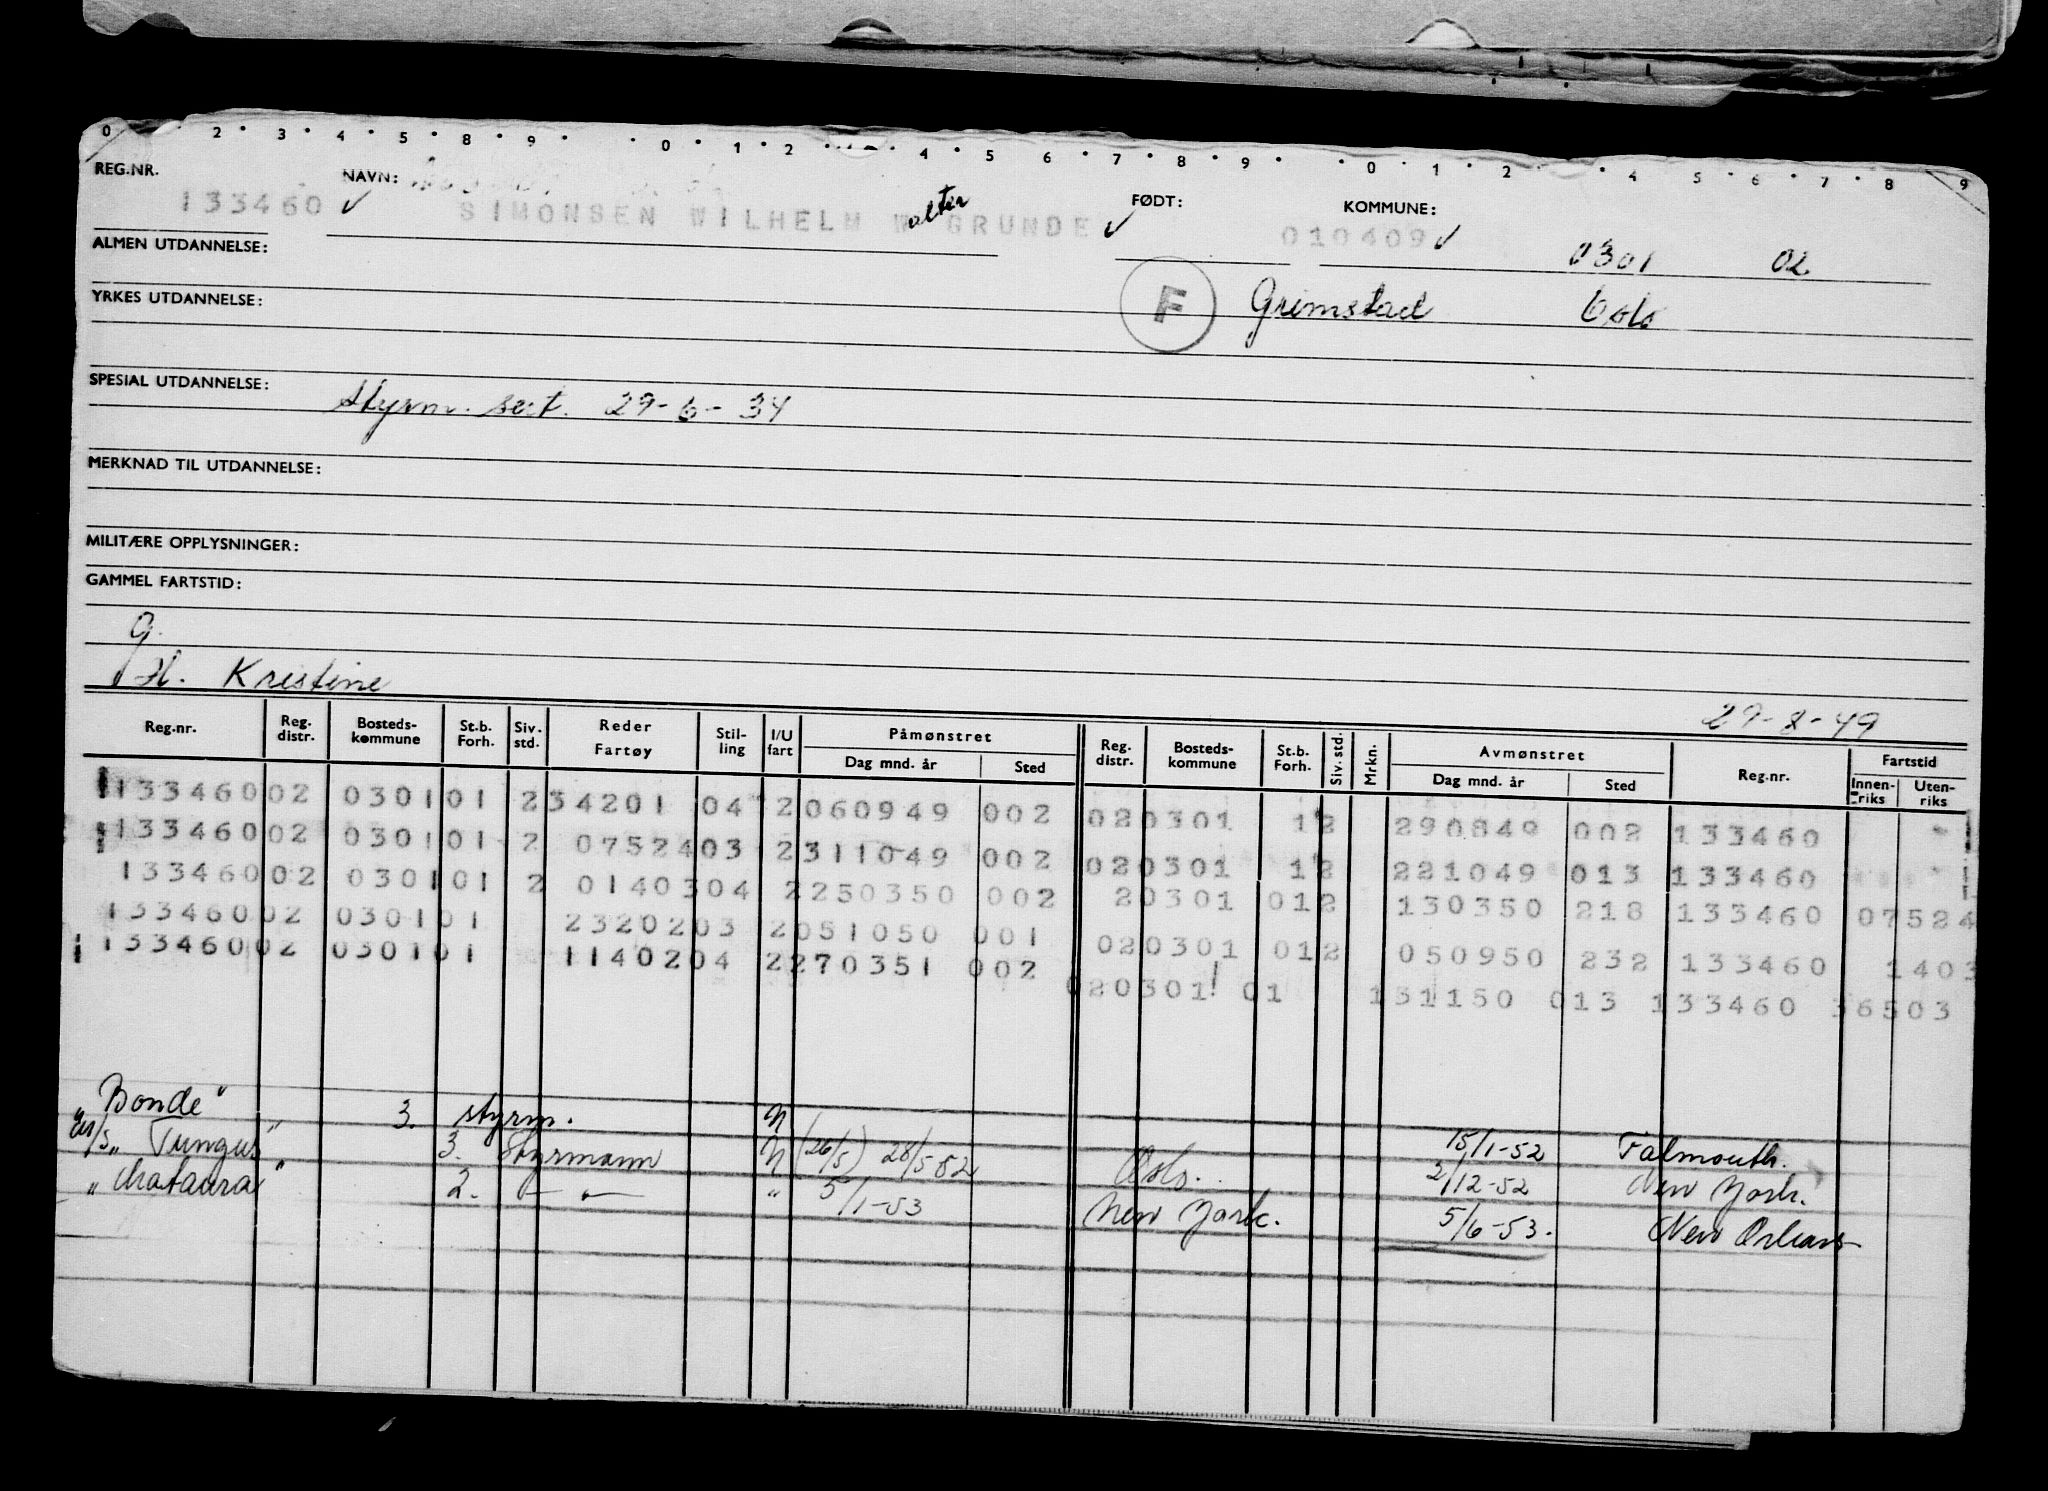 0 2 3 4 5 8 9 0 1 2 4 5 6 7 8 9 0 1 2 4 5 6 7 8 9
REG.NR. NAVN: FØDT: KOMMUNE:
133460 SIMONSEN WILHELM Walter GRUNDE 010409 0301 02
ALMEN UTDANNELSE:
F Grimstad Oslo
YRKES UTDANNELSE:
SPESIAL UTDANNELSE: Styrm. sert. 29-6-34
MERKNAD TIL UTDANNELSE:
MILITÆRE OPPLYSNINGER:
GAMMEL FARTSTID:
G.
H. Kristine
29-8-49
Reg.nr. Reg. distr. Bosteds- kommune St.b. Forh. Siv. std. Reder Fartøy Stil- ling I/U fart Påmønstret Dag mnd. år Sted Reg. distr. Bosteds- kommune St.b. Forh. Siv. std. Mrkn. Avmønstret Dag mnd. år Sted Reg.nr. Fartstid Innen- riks Uten- riks
133460 02 0301 01 2 34201 04 2 060949 002 02 0301 1 2 290849 002 133460
133460 02 0301 01 2 07524 03 2 311049 002 02 0301 1 2 221049 013 133460
133460 02 0301 01 2 01403 04 2 250350 002 2 0301 01 2 130350 218 133460 07524
133460 02 0301 01 23202 03 2 051050 001 02 0301 01 2 050950 232 133460 1403
133460 02 0301 01 11402 04 2 270351 002 02 0301 01 131150 013 133460 36503
"Bonde" 3. styrm. N 15/1-52 Falmouth.
M/S "Tungus" 3. Styrmann N (26/5) 28/5-52 Oslo. 2/12-52 New York.
"Mataura" 2. — " — " 5/1-53 New York. 5/6-53. New Orleans